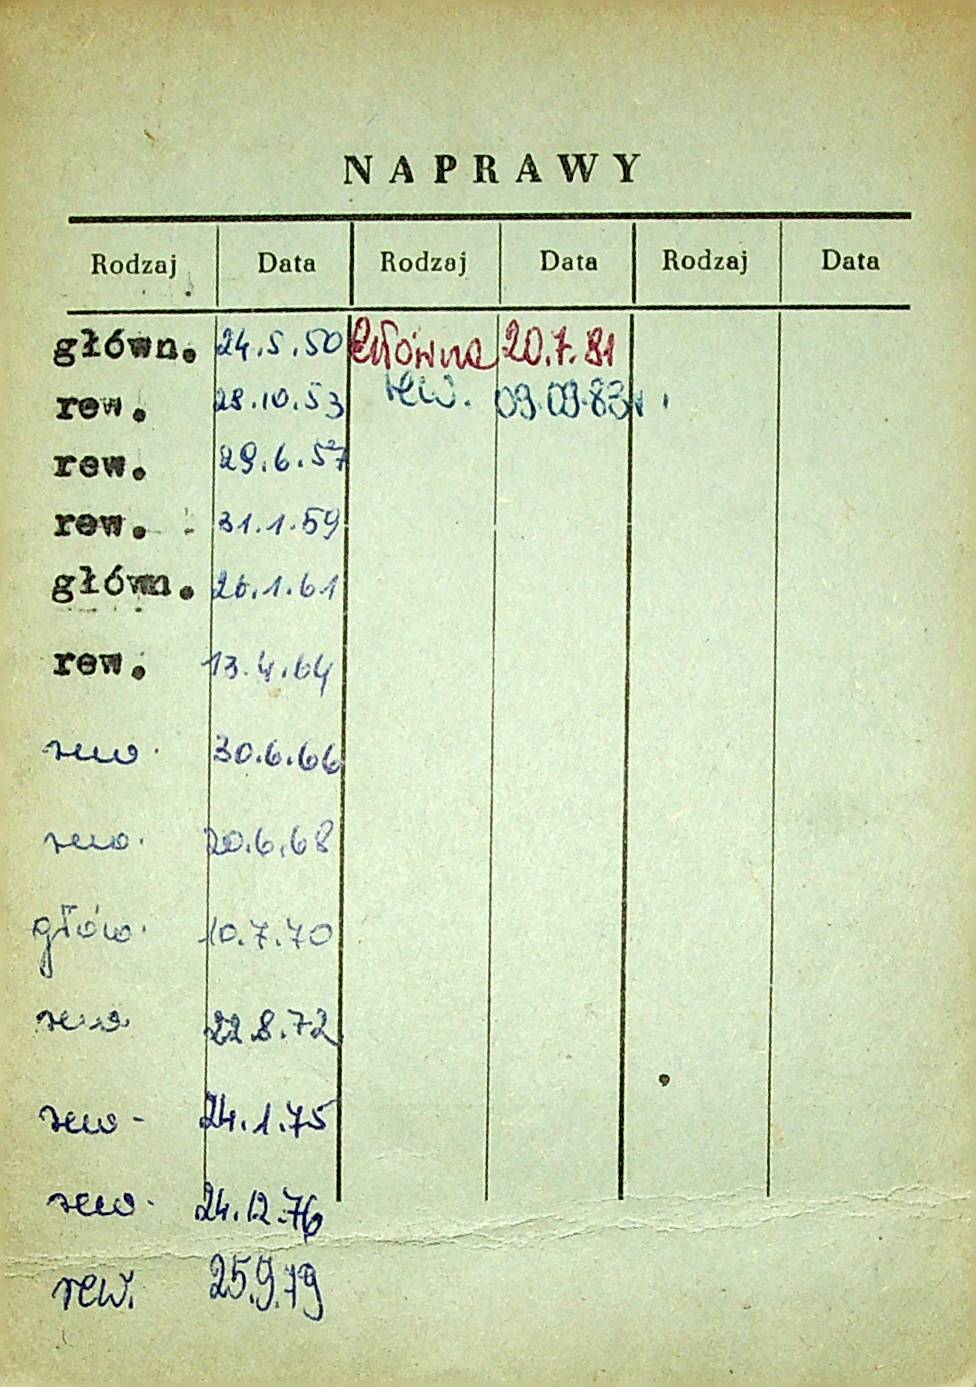 NAPRAWY
Rodzaj Data Rodzaj Data Rodzaj Data
główn. 24.5.50 Główna 20.7.81
rew. 28.10.53 rew. 09.09.83r.
rew. 29.6.57
rew. 31.1.59
główn. 26.1.61
rew. 13.4.64
rew. 30.6.66
rew. 20.6.68
głów. 10.7.70
rew. 22.8.72
rew - 24.1.75
rew. 24.12.76
rew. 25.9.79